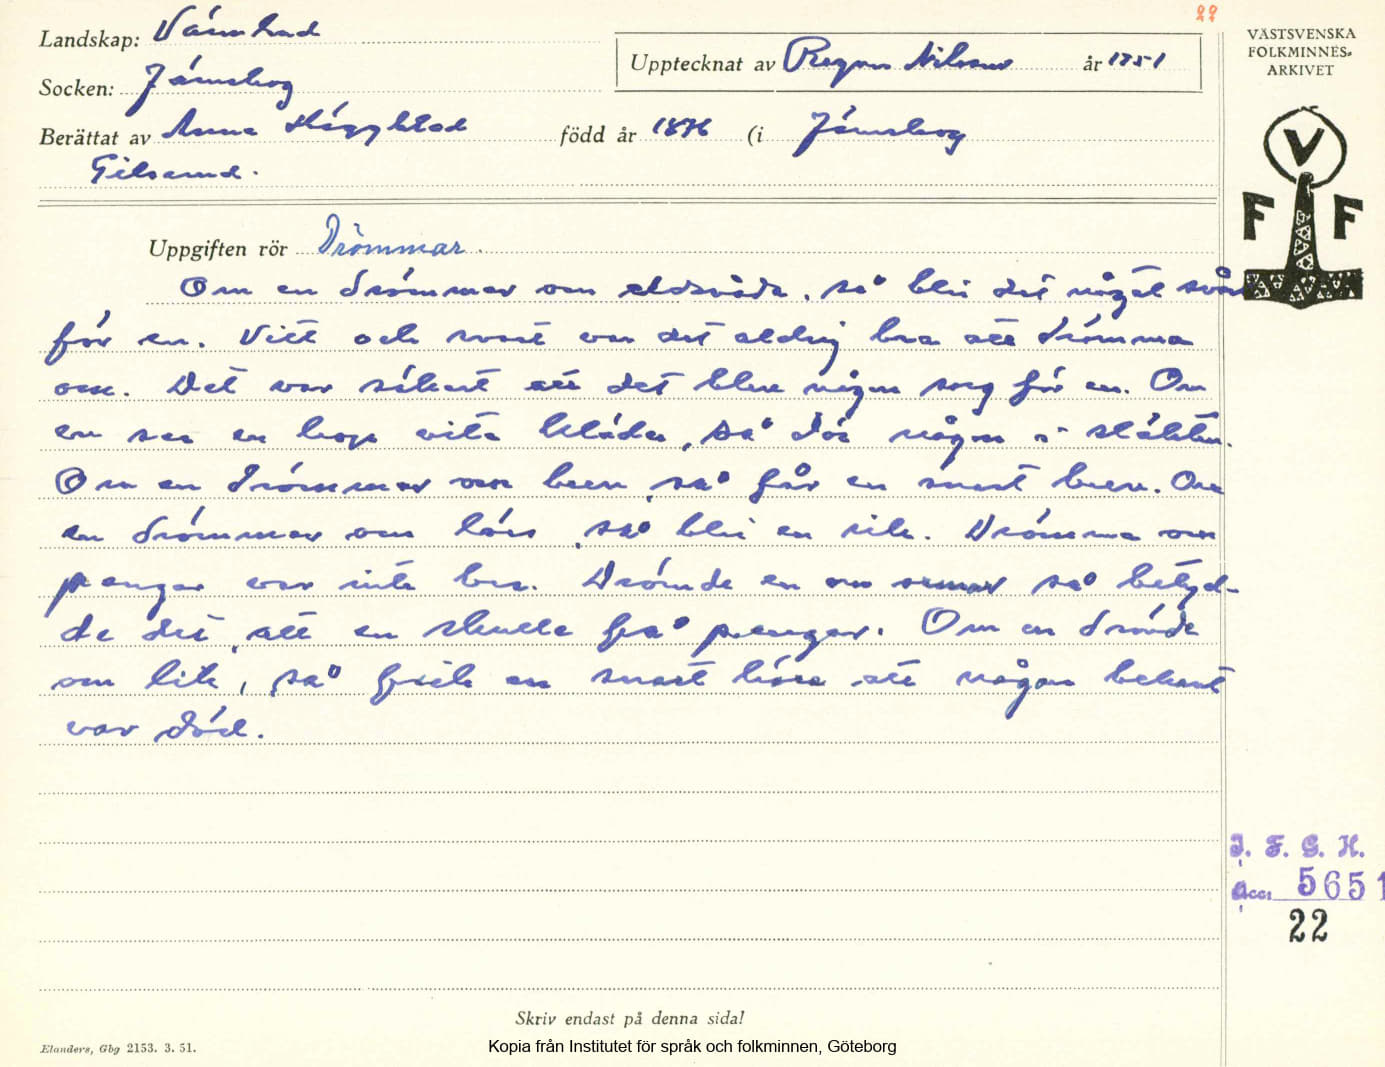 22
Landskap: Värmland
Upptecknat av Ragnar Nilsson år 1951
VÄSTSVENSKA
FOLKMINNES-
ARKIVET
Socken: Järnskog
Berättat av Anna Häggblad född år 1876 (i Järnskog
Gilserud.
V
F F
Uppgiften rör Drömmar.
Om en drömmer om eldsvåda, så blir det något svårt
för en. Vitt och svart var det aldrig bra att drömma
om. Det var säkert att det blev någon sorg för en. Om
en ser en hop vita kläder, så dör någon i släkten.
Om en drömmer om brev, så får en snart brev. Om
en drömmer om lörs, så blir en rik. Drömma om
pengar var inte bra. Drömde en om ormar så betyd-
de det, att en skulle få pengar. Om en drömde
om lik, så fick en snart höra att någon bekant
var död.
I. F. G. H.
Acc. 5651
22
Skriv endast på denna sida!
Elanders, Gbg 2153. 3. 51.
Kopia från Institutet för språk och folkminnen, Göteborg